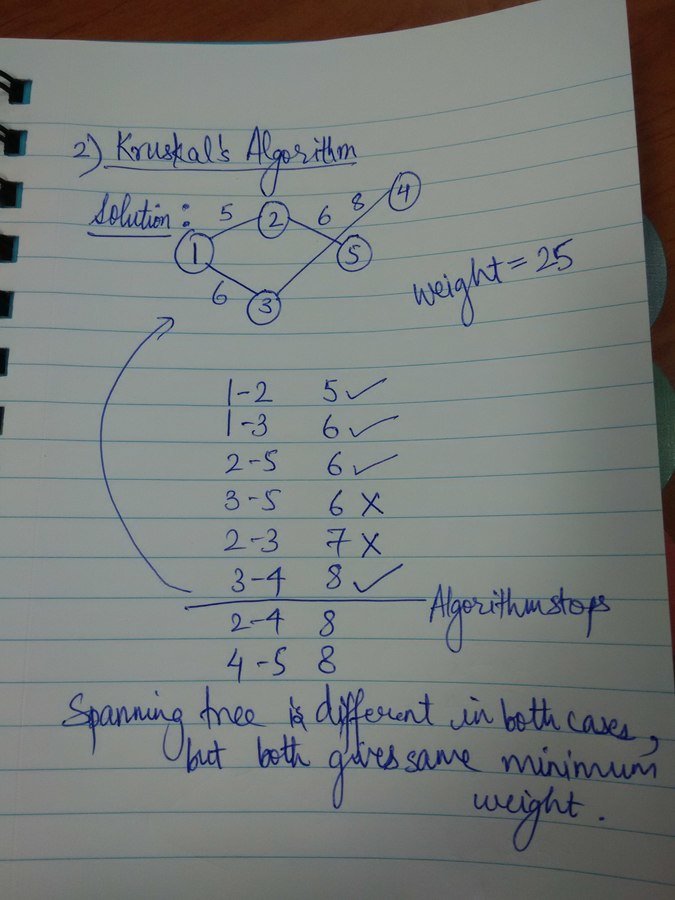 2) Kruskal's Algorithm
Solution :
5
2
6
8
4
1
5
6
3
weight = 25
1-2 5 ✓
1-3 6 ✓
2-5 6 ✓
3-5 6 X
2-3 7 X
3-4 8 ✓
Algorithm stops
2-4 8
4-5 8
Spanning tree is different in both cases,
but both gives same minimum
weight.